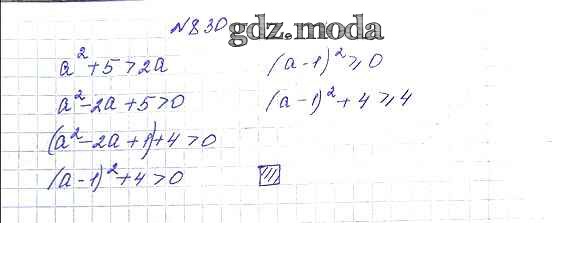 №830 gdz.moda
a² + 5 > 2a
a² - 2a + 5 > 0
(a² - 2a + 1) + 4 > 0
(a - 1)² + 4 > 0
(a - 1)² ⩾ 0
(a - 1)² + 4 ⩾ 4